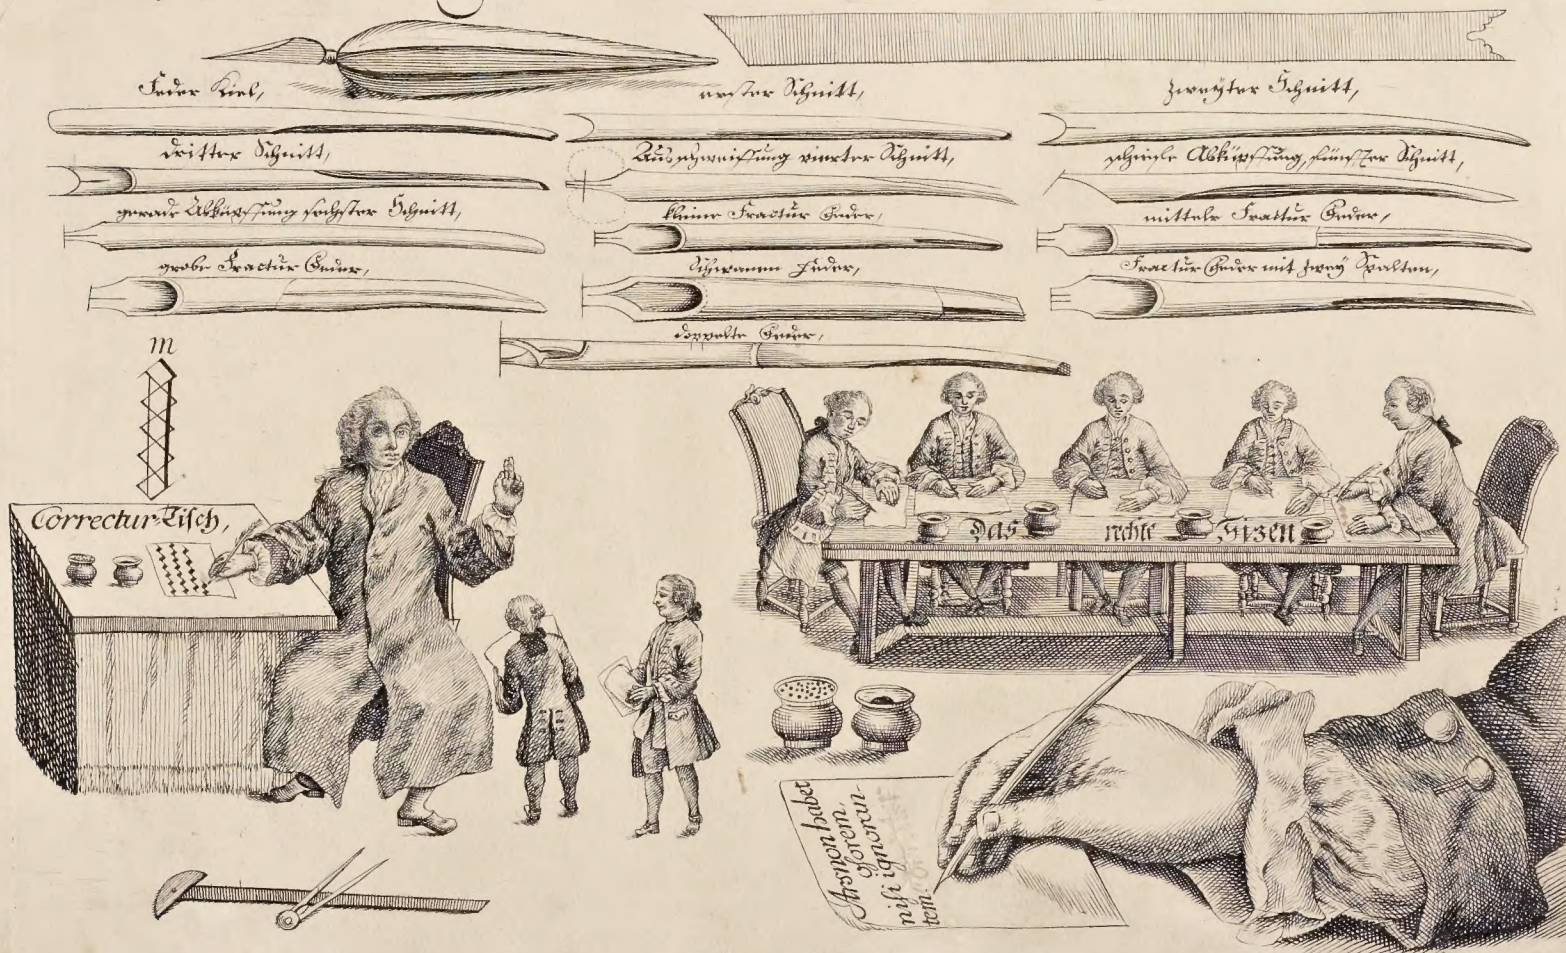 Feder Kiel,
erster Schnitt,
Zweyter Schnitt,
dritter Schnitt,
Ausschweiffung vierter Schnitt,
schiefe Abküpffung, fünffter Schnitt,
gerade Abküpffung sechster Schnitt,
kleine Fractur Feder,
mittele Fractur Feder,
grobe Fractur Feder,
Schwanen Feder,
Fractur Feder mit zwey Spalten,
doppelte Feder,
m
Correctur-Tisch,
Das rechte Sizen
Ars non habet
osorem,
nisi ignoran-
tem.